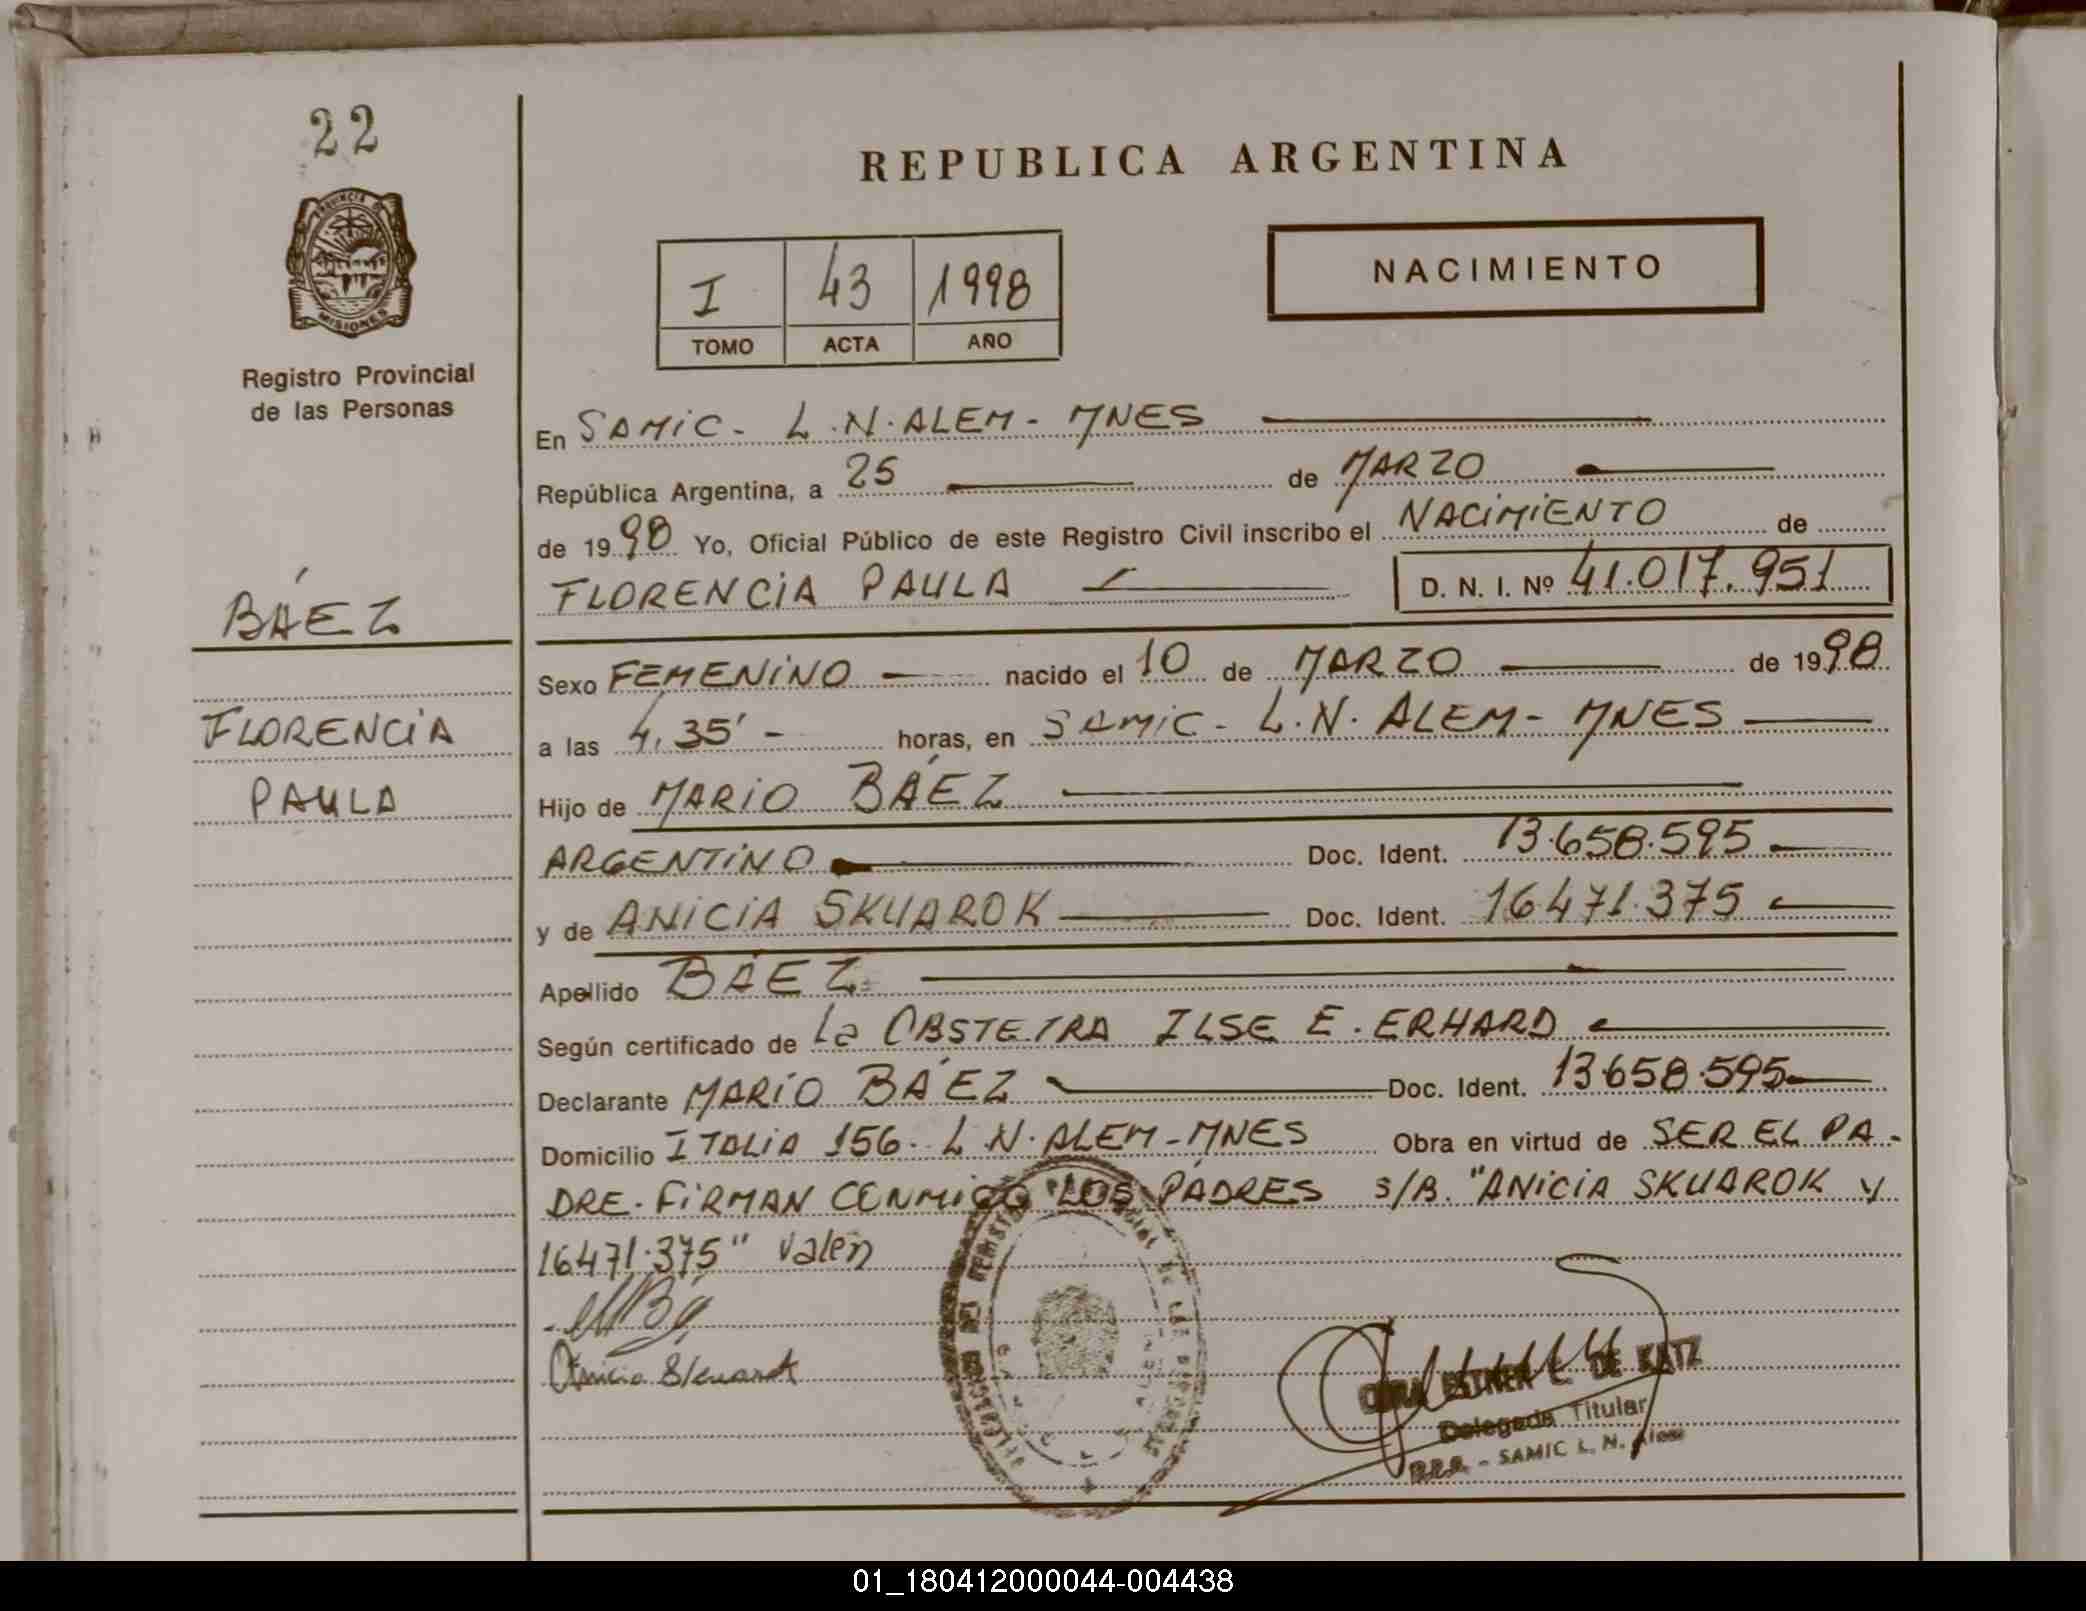 22
REPUBLICA ARGENTINA
PROVINCIA DE
MISIONES
Registro Provincial
de las Personas
I 43 1998
TOMO ACTA AÑO
NACIMIENTO
En SAMIC - L.N.ALEM - MNES
República Argentina, a 25 de MARZO
de 1998 Yo, Oficial Público de este Registro Civil inscribo el NACIMIENTO de
FLORENCIA PAULA D. N. I. Nº 41.017.951
BÁEZ
FLORENCIA
PAULA
Sexo FEMENINO nacido el 10 de MARZO de 1998
a las 4,35' - horas, en SAMIC - L.N. ALEM - MNES
Hijo de MARIO BÁEZ
ARGENTINO Doc. Ident. 13.658.595
y de ANICIA SKUAROK Doc. Ident. 16471.375
Apellido BÁEZ
Según certificado de La OBSTETRA ILSE E. ERHARD
Declarante MARIO BÁEZ Doc. Ident. 13.658.595
Domicilio ITALIA 156 - L.N. ALEM - MNES Obra en virtud de SER EL PA-
DRE. FIRMAN CONMIGO LOS PADRES s/B. "ANICIA SKUAROK y
16471.375" Valen
Anicia Skuarok
ESTHER E. DE KATZ
Delegada Titular
SAMIC L. N. Alem
01_180412000044-004438